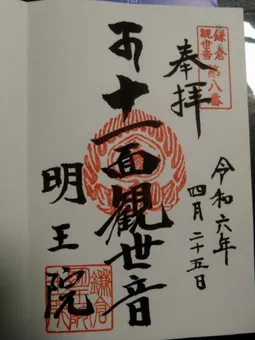 鎌倉
観世音第八番
奉拝
令和六年
四月二十五日
十一面觀世音
明王院
鎌倉